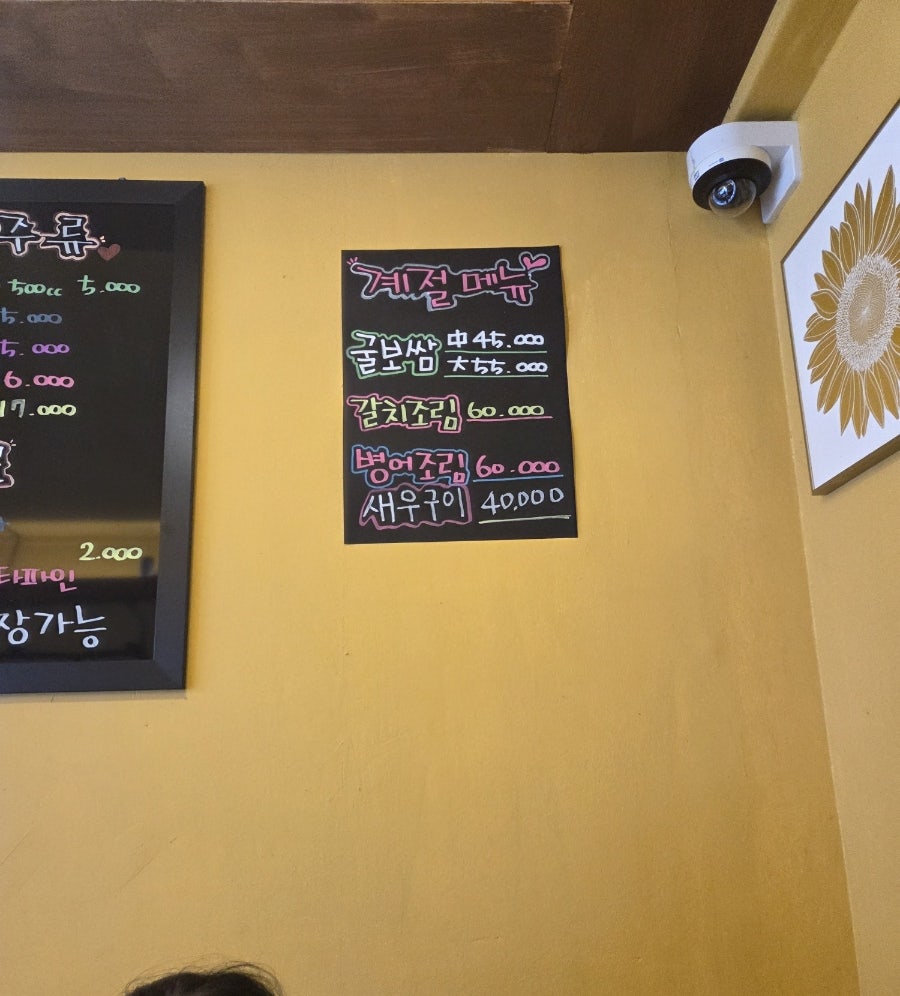 주류
500cc 5.000
5.000
5.000
6.000
17.000
2.000
타파인
장가능
계절메뉴
굴보쌈 中 45.000
大 55.000
갈치조림 60.000
병어조림 60.000
새우구이 40,000